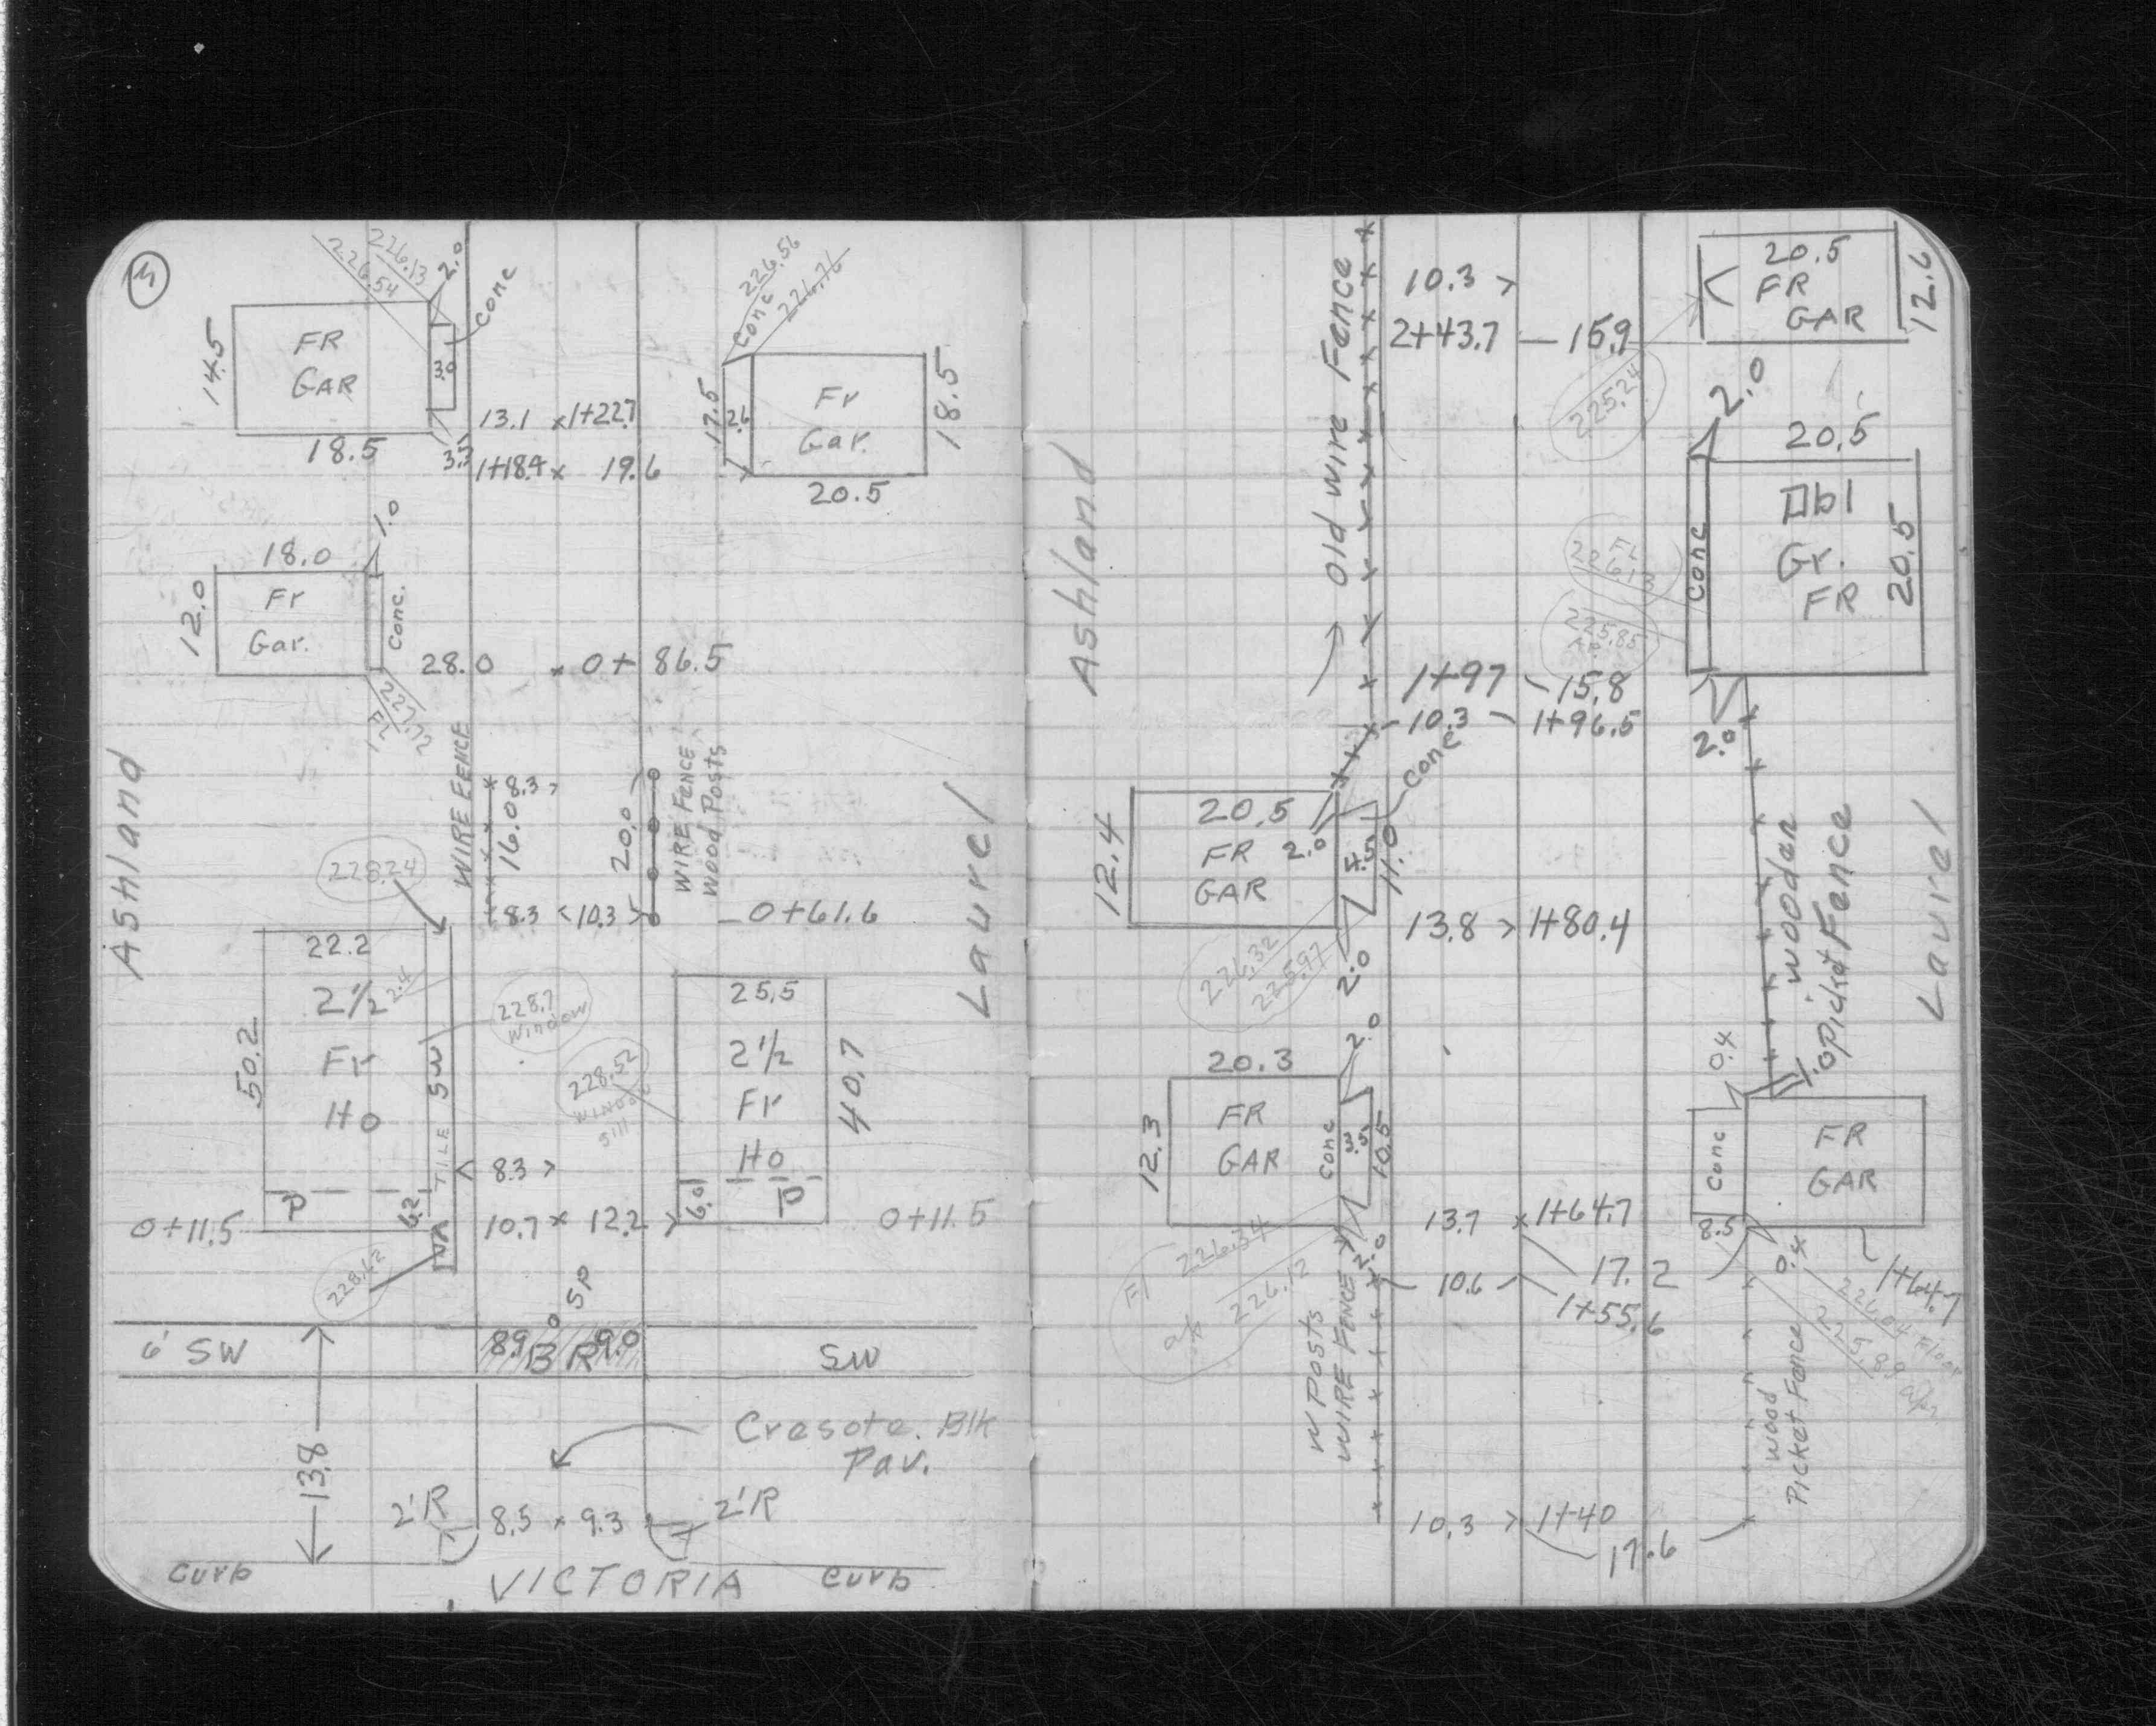 3
226.13
226.54
2.0
Conc
14.5
FR
GAR
3.0
18.5
3.3
13.1 x 1+22.7
1+18.4 x 19.6
226.56
Conc
226.76
17.5
2.6
Fr
Gar.
18.5
20.5
1.0
18.0
12.0
Fr
Gar.
Conc.
227.72
FL
28.0 x 0+86.5
Ashland
WIRE FENCE
8.3
16.0
20.0
WIRE FENCE
Wood Posts
8.3 10.3
0+61.6
Laurel
228.24
22.2
2½
2.4
Fr
Ho
50.2
TILE SW
P
6.2
0+11.5
228.62
228.7
Window
228.52
WINDOW
Sill
25.5
2½
Fr
Ho
40.7
6.0
P
8.3
10.7 x 12.2
0+11.5
SP
6' SW
8.9 BR 9.0
SW
13.8
Cresote. Blk
Pav.
2'R
8.5 x 9.3
2'R
Curb
VICTORIA
Curb
Ashland
Old wire Fence
10.3
2+43.7 — 15.9
20.5
FR
GAR
12.6
225.24
2.0
20.5
Dbl
Gr.
FR
20.5
Conc
FL
226.13
225.85
Ap
1+97 - 15.8
10.3 - 1+96.5
2.0
Conc
12.4
20.5
FR
GAR
2.0
4.5
11.0
13.8 > 1+80.4
226.32
225.97
2.0
wooden
picket Fence
Laurel
2.0
20.3
12.3
FR
GAR
Conc
3.5
10.5
0.4
1.0
Conc
FR
GAR
8.5
0.4
13.7 x 1+64.7
17.2
10.6
1+55.6
1+64.7
226.04 Floor
225.89
Fl 226.34
226.12
2.0
W Posts
WIRE FENCE
Wood
Picket Fence
10.3 > 1+40
17.6